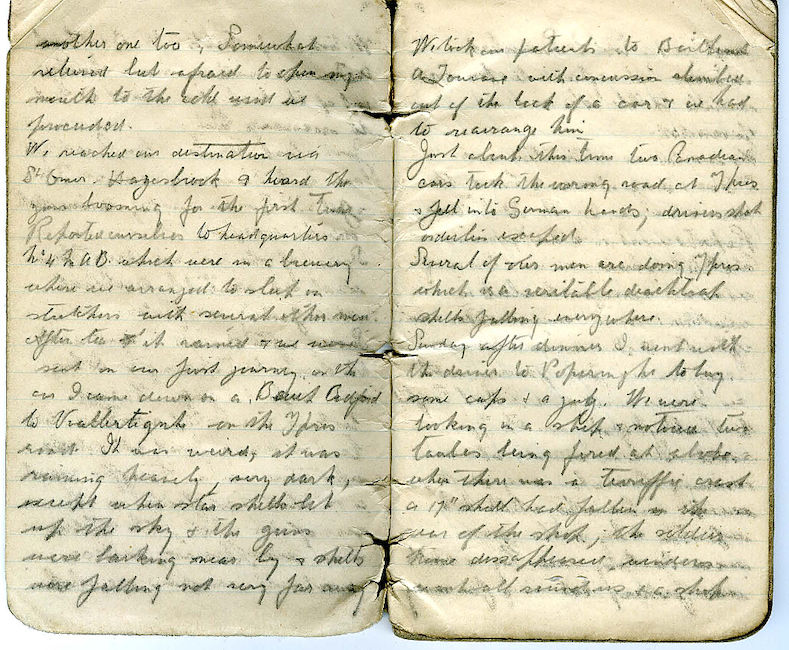 another one too, Somewhat
relieved but afraid to open my
mouth to the
proceeded.
We reached our destination via
St Omer. Hazesbrook & heard the
guns booming for the first time
Reported ourselves to headquarters
No 4 M A B. which were in a brewery
where we arranged to sleep on
stretchers with several other men
After tea it rained & we were
sent on our first journey, on the
car I came down on a Bedford
to Vlallertignhe on the Ypres
road. It was weird, it was
raining heavily, very dark,
except when star shells lit
up the sky & the guns
were barking near by & shells
were falling not very far away
We took our patients to
A with concussion climbed
out of the back of a car & we had
to rearrange him
Just about this time two Canadian
cars took the wrong road at Ypres
& fell into German hands, drivers shot
orderlies escaped
Several of our men are doing Ypres
which is a veritable deathtrap
shells falling everywhere.
Sunday after dinner I went with
the driver to Poperinghe to buy
some cups & a jug. We were
looking in a shop & noticed two
taubes being fired at above
when there was a terriffic crash
a 17" shell had fallen in the
rear of the shop, the soldiers
have dissappeared, windows
all & a shop